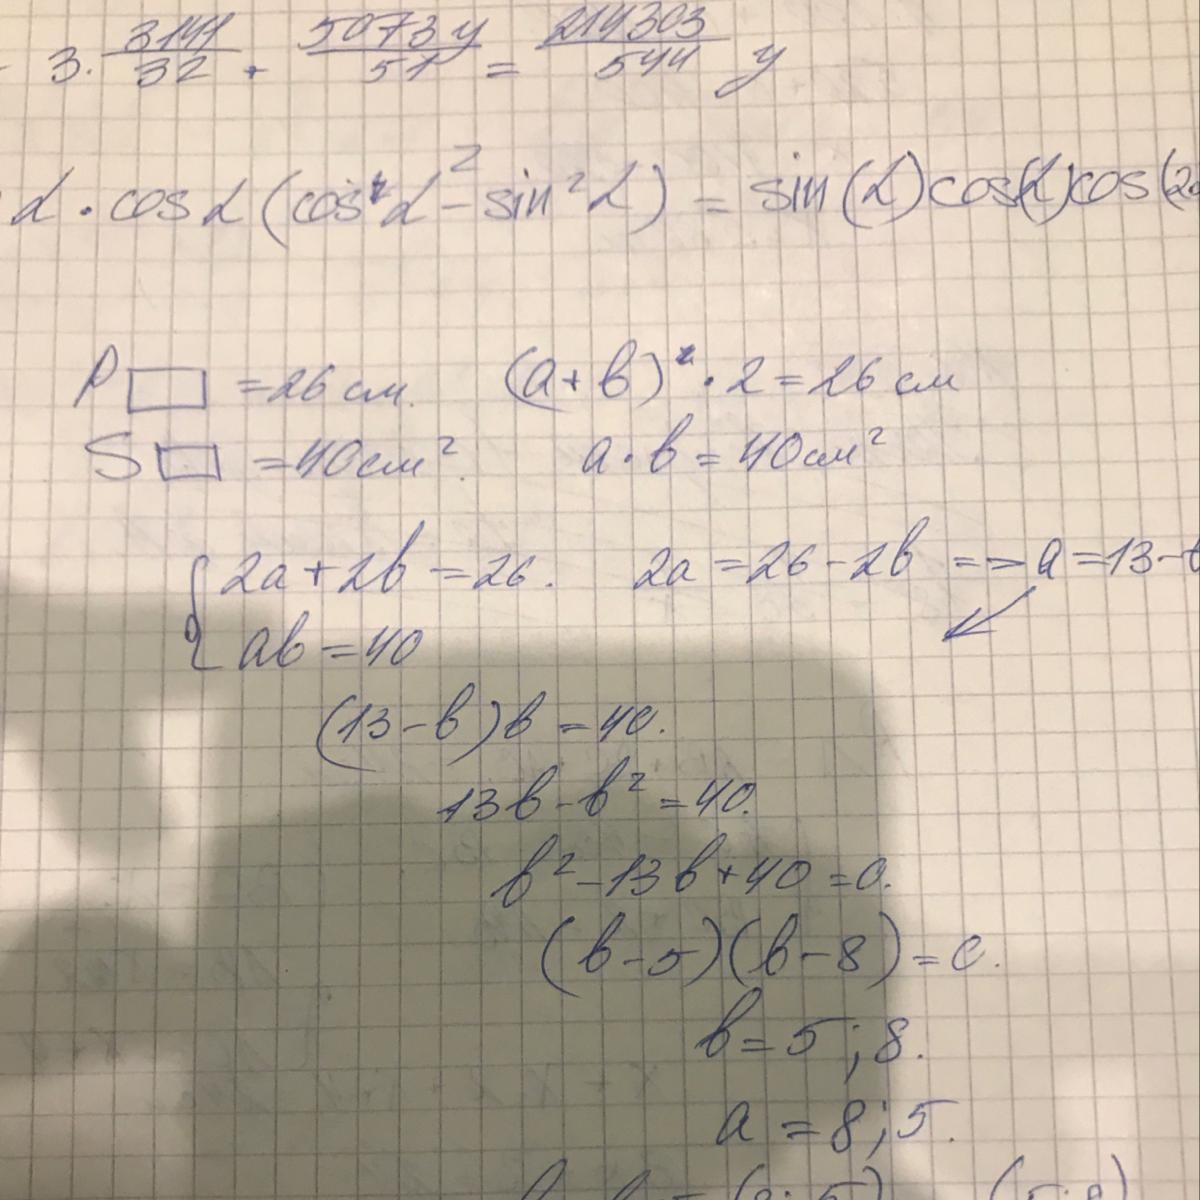 3. 3141/32 + 5073y/51 = 214303/544 y
α · cos α (cos² α - sin² α) = sin(α)cos(α)cos(2
P▭ = 26 см. (a + b) · 2 = 26 см
S▭ = 40 см². a · b = 40 см²
{ 2a + 2b = 26. 2a = 26 - 2b => a = 13 - b
ab = 40
(13 - b)b = 40.
13b - b² = 40.
b² - 13b + 40 = 0.
(b - 5)(b - 8) = 0.
b = 5; 8.
a = 8; 5.